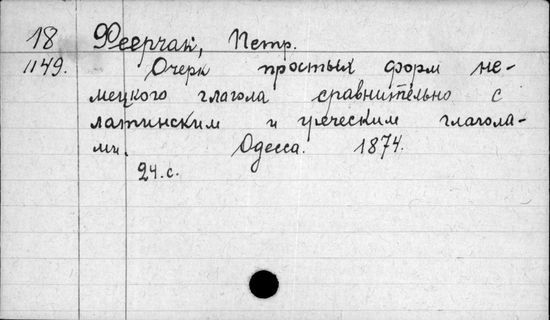 18 Феерчак, Петр.
1149. Очерк простых форм не-
мецкого глагола сравнительно с
латинским и греческим глагола-
ми. Одесса. 1874.
24 с.